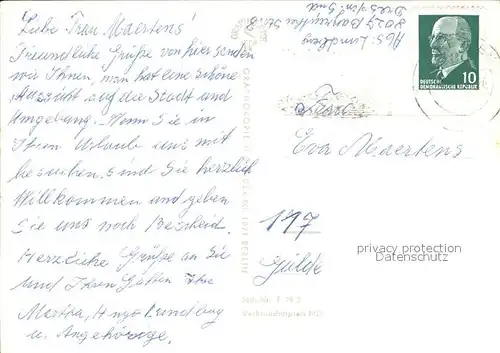 Liebe Frau Maertens!
Freundliche Grüße von hier senden
wir Ihnen, man hat eine schöne
Aussicht auf die Stadt und
Umgebung. Wenn Sie in
Ihrem Urlaub uns mit
besuchen, sind Sie herzlich
Willkommen und geben
Sie uns noch Bescheid.
Herzliche Grüße an Sie
und Ihren Gatten Ihre
Martha, Hugo Lundberg
u. Angehörige.
Abs. Lundberg
8027 Dresden
10
DEUTSCHE
DEMOKRATISCHE REPUBLIK
Frau
Eva Maertens
117
Gülde
privacy protection
Datenschutz
BERLIN